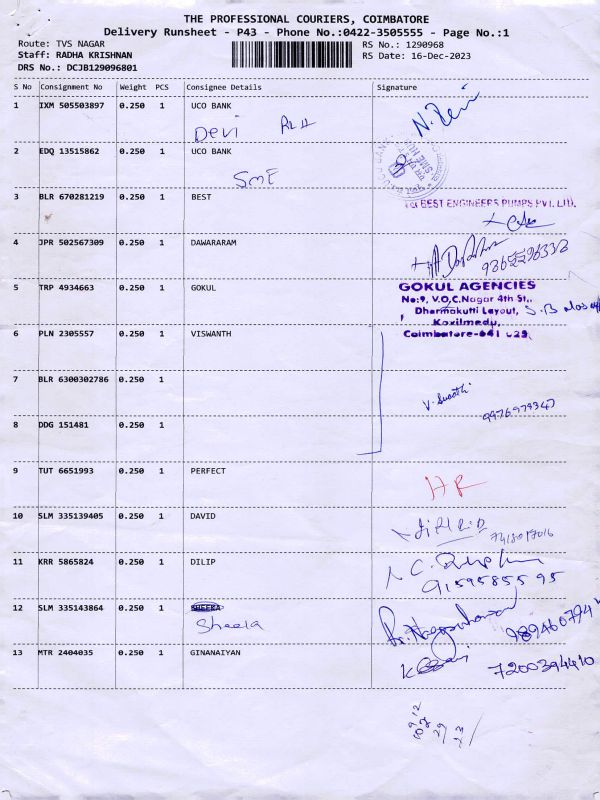 THE PROFESSIONAL COURIERS, COIMBATORE
Delivery Runsheet - P43 - Phone No.:0422-3505555 - Page No.:1
Route: TVS NAGAR RS No.: 1290968
Staff: RADHA KRISHNAN RS Date: 16-Dec-2023
DRS No.: DCJB129096801
S No Consignment No Weight PCS Consignee Details Signature
1 IXM 505503897 0.250 1 UCO BANK
Devi
2 EDQ 13515862 0.250 1 UCO BANK
SME
3 BLR 670281219 0.250 1 BEST
For BEST ENGINEERS PUMPS PVT. LTD.
4 JPR 502567309 0.250 1 DAWARARAM
5 TRP 4934663 0.250 1 GOKUL
GOKUL AGENCIES
No:9, V.O.C.Nagar 4th St.,
Dharmakutti Layout,
Kovilmedu,
Coimbatore-641 025.
6 PLN 2305557 0.250 1 VISWANTH
7 BLR 6300302786 0.250 1
9976979347
8 DDG 151481 0.250 1
9 TUT 6651993 0.250 1 PERFECT
10 SLM 335139405 0.250 1 DAVID
11 KRR 5865824 0.250 1 DILIP
9159585595
12 SLM 335143864 0.250 1
Sheela
13 MTR 2404035 0.250 1 GINANAIYAN
7200394410